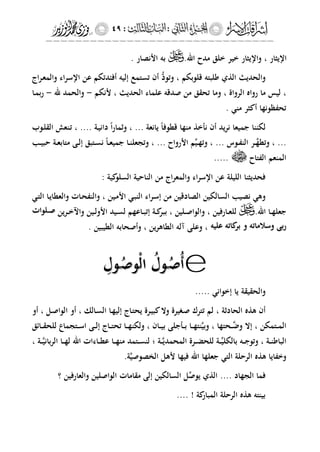 إشراقات الإسراء .. الجزء الثاني : ٤٩
الإيثار ، والإيثار خير خلق مدح الله ﷻ به الأنصار .
والحديث الذي طلبته قلوبكم ، وتودُّ أن تستمع إليه أفئدتكم عن الإسراء والمعراج
، ليس ما رواه الرواة ، وما تحقق من صدقه علماء الحديث ، لأنكم – والحمد لله – ربما
تحفظونها أكثر مني .
لكننا جميعا نريد أن نأخذ منها قطوفاً يانعة ... ، وثماراً دانية .... ، تنعش القلوب
... ، وتطهِّر النفوس ... ، وتهيِّم الأرواح ... ، وتجعلنا جميعاً نستبق إلى متابعة حبيب
المنعم الفتاح ﷺ .....
فحديثنا الليلة عن الإسراء والمعراج من الناحية السلوكية :
وهي نصيب السالكين الصادقين من إسراء النبي الأمين ، والنفحات والعطايا التي
جعلها الله ﷻ للعارفين ، والواصلين ، ببركة إتباعهم لسيد الأولين والآخرين صلوات
ربى وسلاماته و بركاته عليه ، وعلى آله الطاهرين ، وأصحابه الطيبين .
أُصُولُ الْوُصُولِ
والحقيقة يا إخواني .....
أن هذه الحادثة ، لم تترك صغيرة ولا كبيرة يحتاج إليها السالك ، أو الواصل ، أو
المتمكن ، إلا وضَّحتها ، وبيَّنتها بأجلى بيان ، ولكنها تحتاج إلى استجماع للحقائق
الباطنة ، وتوجه بالكليَّة للحضرة المحمديَّة ؛ لنستمد منها عطاءات الله لها الربانيَّة ،
وخفايا هذه الرحلة التي جعلها الله فيها لأهل الخصوصيَّة.
فما الجهاد .... الذي يوصِّل السالكين إلى مقامات الواصلين والعارفين ؟
بينته هذه الرحلة المباركة ! ....